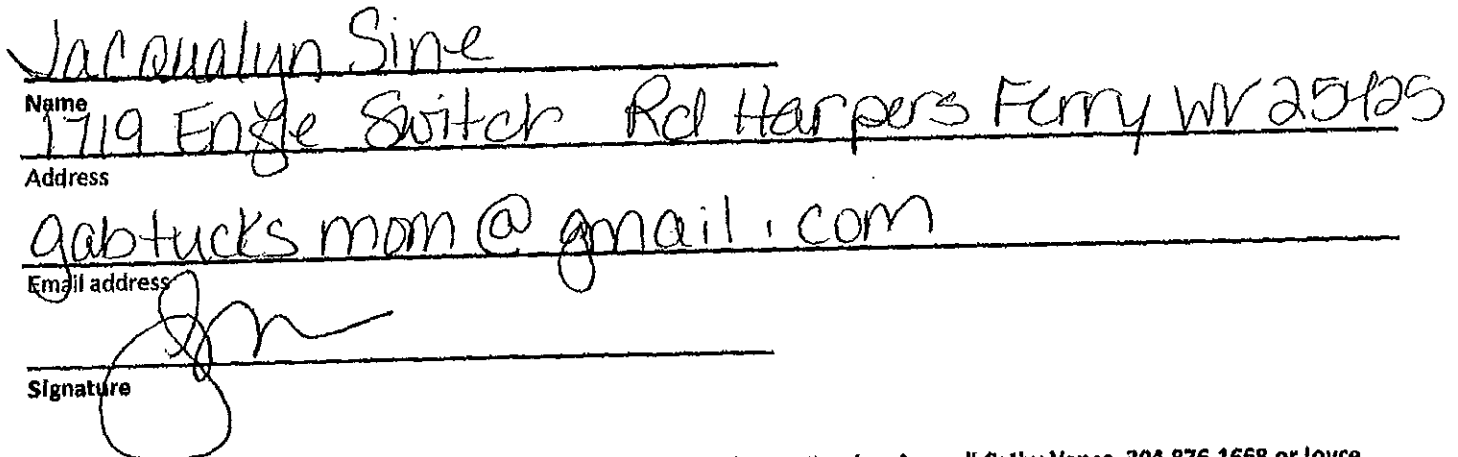 Jacqualyn Sine
Name
1719 Engle Switch Rd Harpers Ferry WV 25425
Address
gabtucksmom@gmail.com
Email address
Signature
call Cathy Vance, 304-876-1668 or Joyce